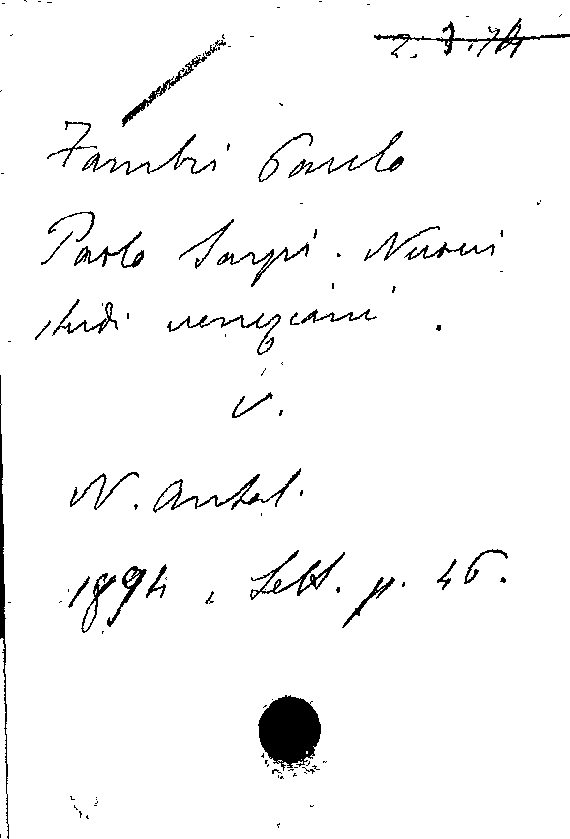 2. 3. 74
Zambri Paulo
Paolo Sarpi. Nuovi
studi veneziani.
v.
N. Antol.
1894, Sett. p. 46.